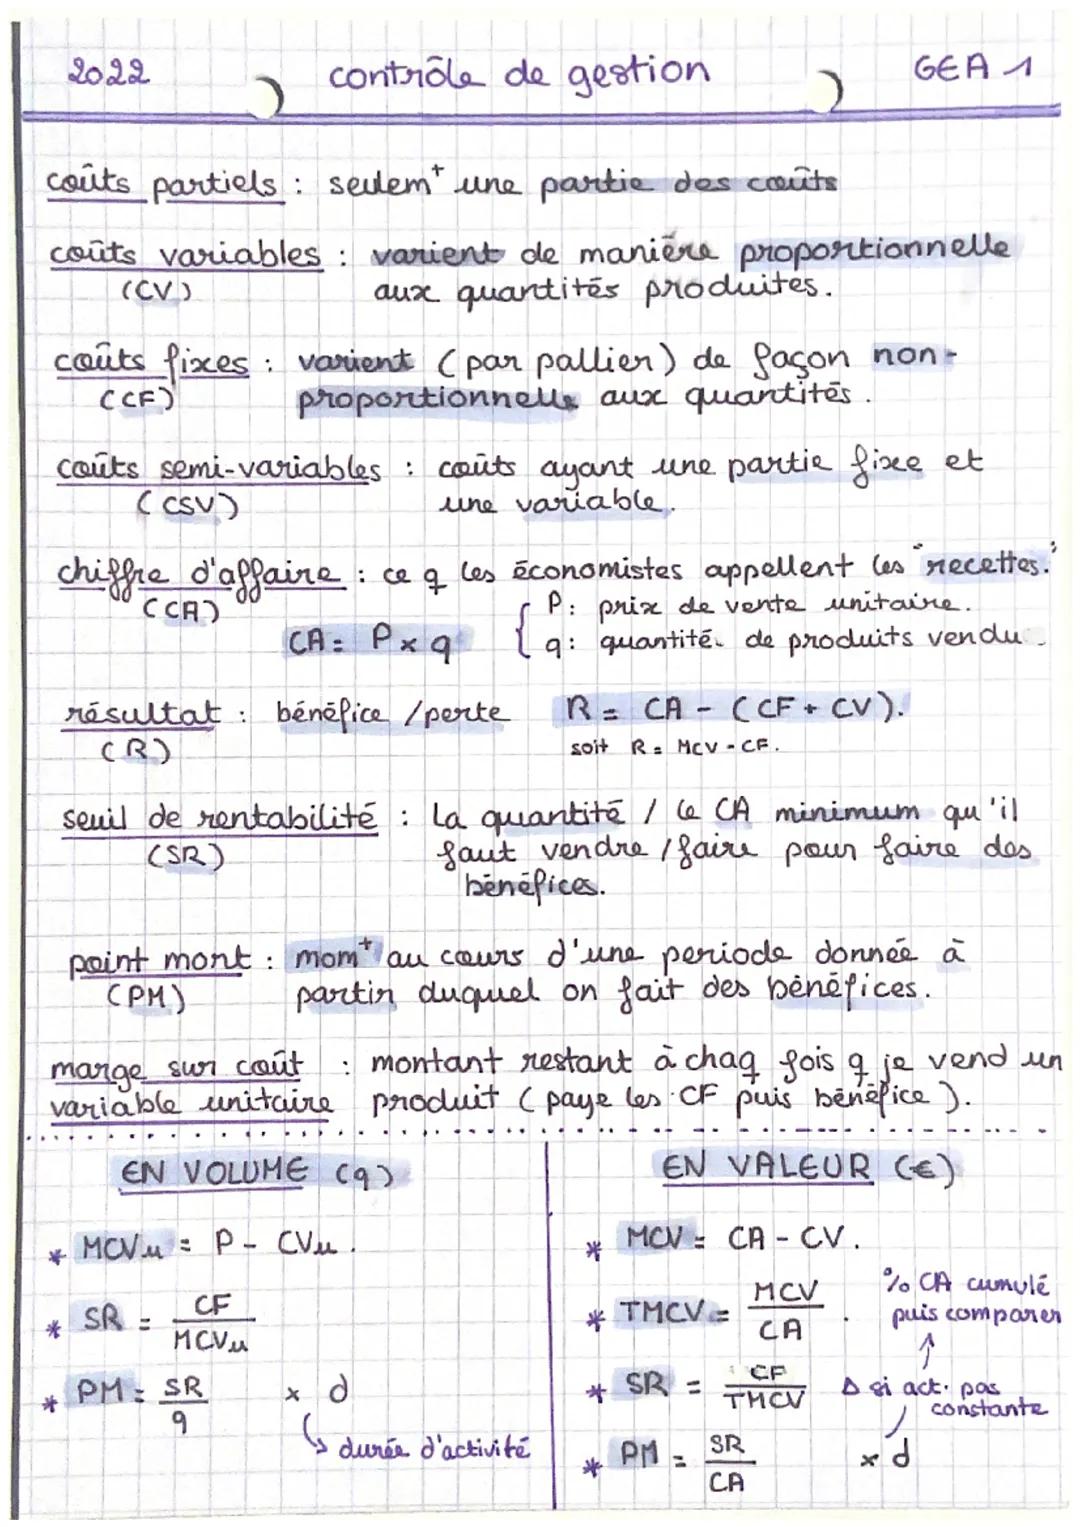 2022 contrôle de gestion GEA 1
coûts partiels : seulem^t une partie des coûts
coûts variables : varient de manière proportionnelle
(CV) aux quantités produites.
coûts fixes : varient (par pallier) de façon non-
(CF) proportionnelle aux quantités.
coûts semi-variables : coûts ayant une partie fixe et
(CSV) une variable.
chiffre d'affaire : ce q les économistes appellent les "recettes."
(CA) P: prix de vente unitaire.
CA = P x q { q: quantité de produits vendu
résultat : bénéfice / perte R = CA - (CF + CV).
(R) soit R = MCV - CF.
seuil de rentabilité : la quantité / le CA minimum qu'il
(SR) faut vendre / faire pour faire des
bénéfices.
point mont : mom^t au cours d'une periode donnée à
(PM) partir duquel on fait des bénéfices.
marge sur coût : montant restant à chaq fois q je vend un
variable unitaire produit (paye les CF puis bénéfice).
EN VOLUME (q)
* MCVu = P - CVu.
* SR = CF / MCVu
* PM = SR / q x d
↳ durée d'activité
EN VALEUR (€)
* MCV = CA - CV.
* TMCV = MCV / CA.
% CA cumulé
puis comparer
* SR = CF / TMCV
Δ si act. pas
constante
* PM = SR / CA x d